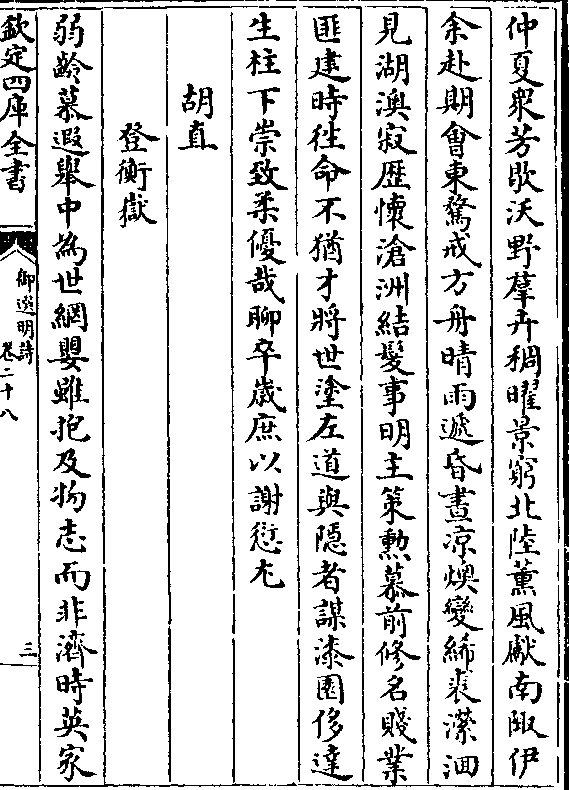 仲夏衆芳歇沃野羣卉稠曜景窮北陸薰風獻南陬伊
余赴期會東騖戒方舟晴雨遞昏晝凉燠變絺裘瀠洄
見湖澳寂歷懷滄洲結髮事明主策勲慕前修名賤業
匪建時徃命不猶才將世塗左道與隱者謀漆園侈達
生柱下崇致柔優哉聊卒歲庶以謝愆尤
胡直
登衡嶽
弱齡慕遐舉中為世網嬰雖抱及物志而非濟時英家
欽定四庫全書
御選明詩
卷二十八
三